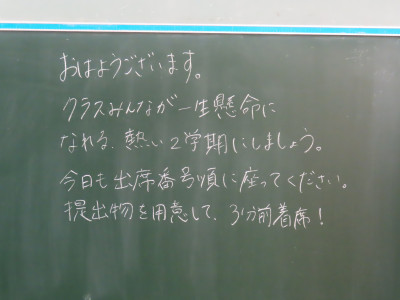 おはようございます。
クラスみんなが一生懸命に
なれる、熱い2学期にしましょう。
今日も出席番号順に座ってください。
提出物を用意して、3分前着席!